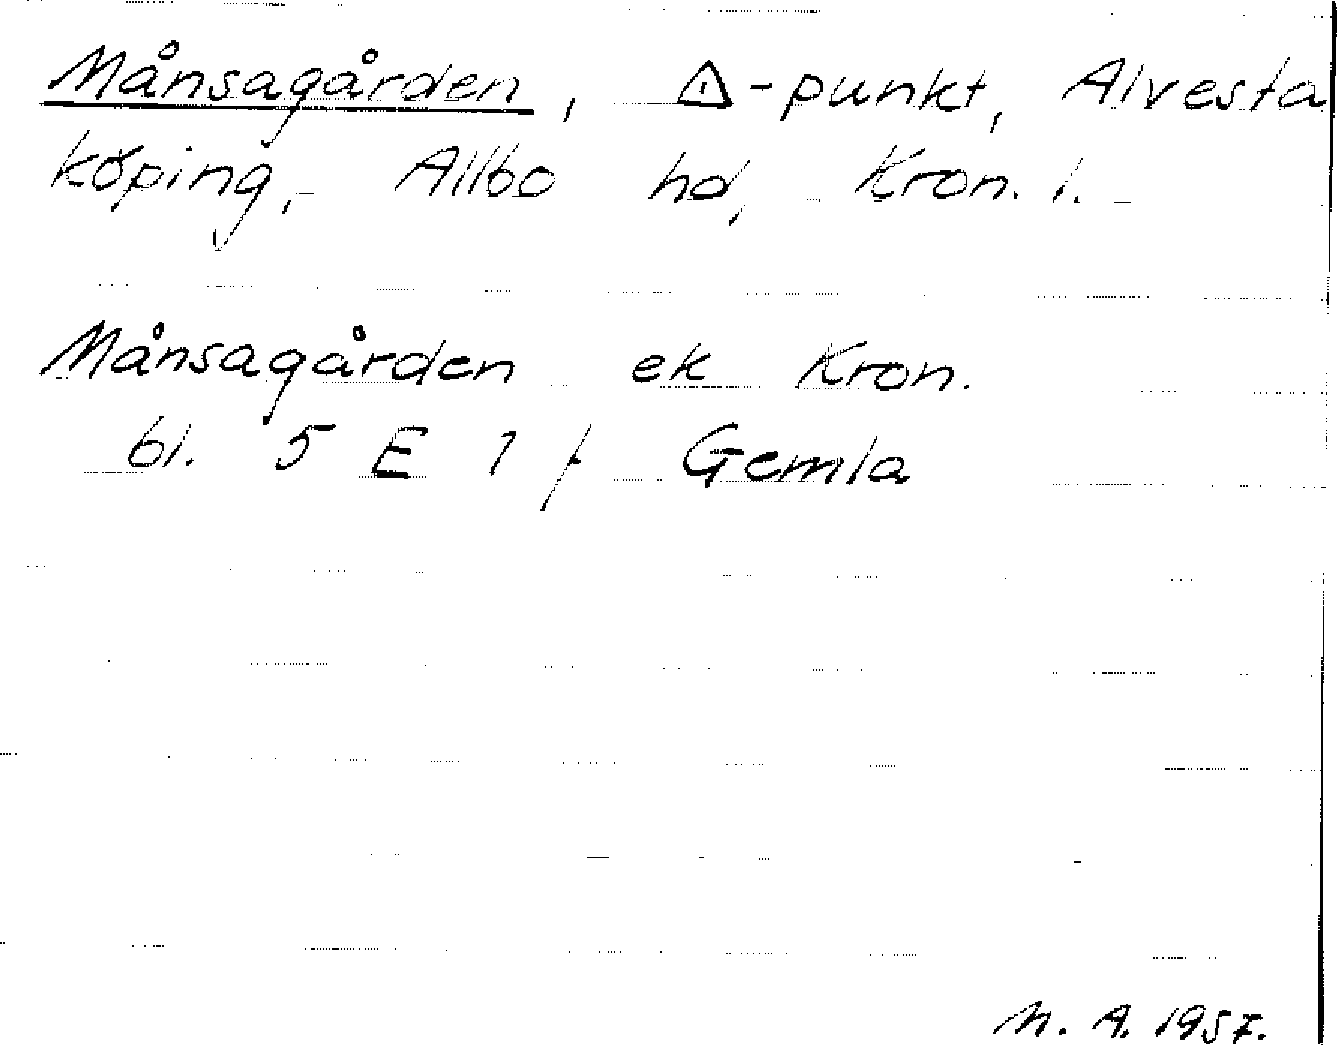 Månsagården, △-punkt, Alvesta
köping, Allbo hd, Kron. l.
Månsagården ek Kron.
bl. 5 E 1 f Gemla
M. A. 1957.